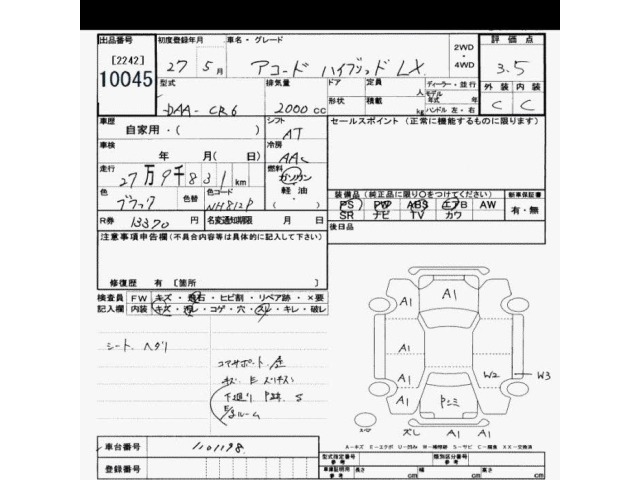 出品番号 初度登録年月 車名・グレード 2WD・4WD 評価点
[2242] 27年 5月 アコード ハイブリッド LX 3.5
10045
型式 排気量 ドア 定員 人 ディーラー・並行 外装 内装
形状 積載 kg モデル年式 年 ハンドル 左・右 C C
DAA-CR6 2000cc
車歴 シフト セールスポイント(正常に機能するものに限ります)
自家用・( ) AT
車検 冷房
年 月(日) AAC
走行 燃料
27万9千831km ガソリン
色 色替 色コード 軽油・( )
ブラック NH812P
装備品(純正品に限り○をつけてください) 新車保証書
PS PW ABS エアB AW 有・無
SR ナビ TV カワ
R券 13370円 名変通知期限 月 日
後日品
注意事項申告欄(不具合内容等は具体的に記入して下さい)
修復歴 有[箇所 ]
検査員 FW キズ・飛石・ヒビ割・リペア跡・×要
記入欄 内装 キズ・汚レ・コゲ・穴・スレ・キレ・破レ
シート ヘタリ
コアサポート
下廻り
ルーム
A1 A1 A1 A1 A1 W2 W3 A1 A1
ズレ A1 A1
A-キズ E-エクボ U-凹み W-補修跡 S-サビ C-腐食 XX-交換済
車台番号 1101198
登録番号
型式指定番号 参考 類別区分番号 参考
車庫証明用 参考 長さ cm 幅 cm 高さ cm